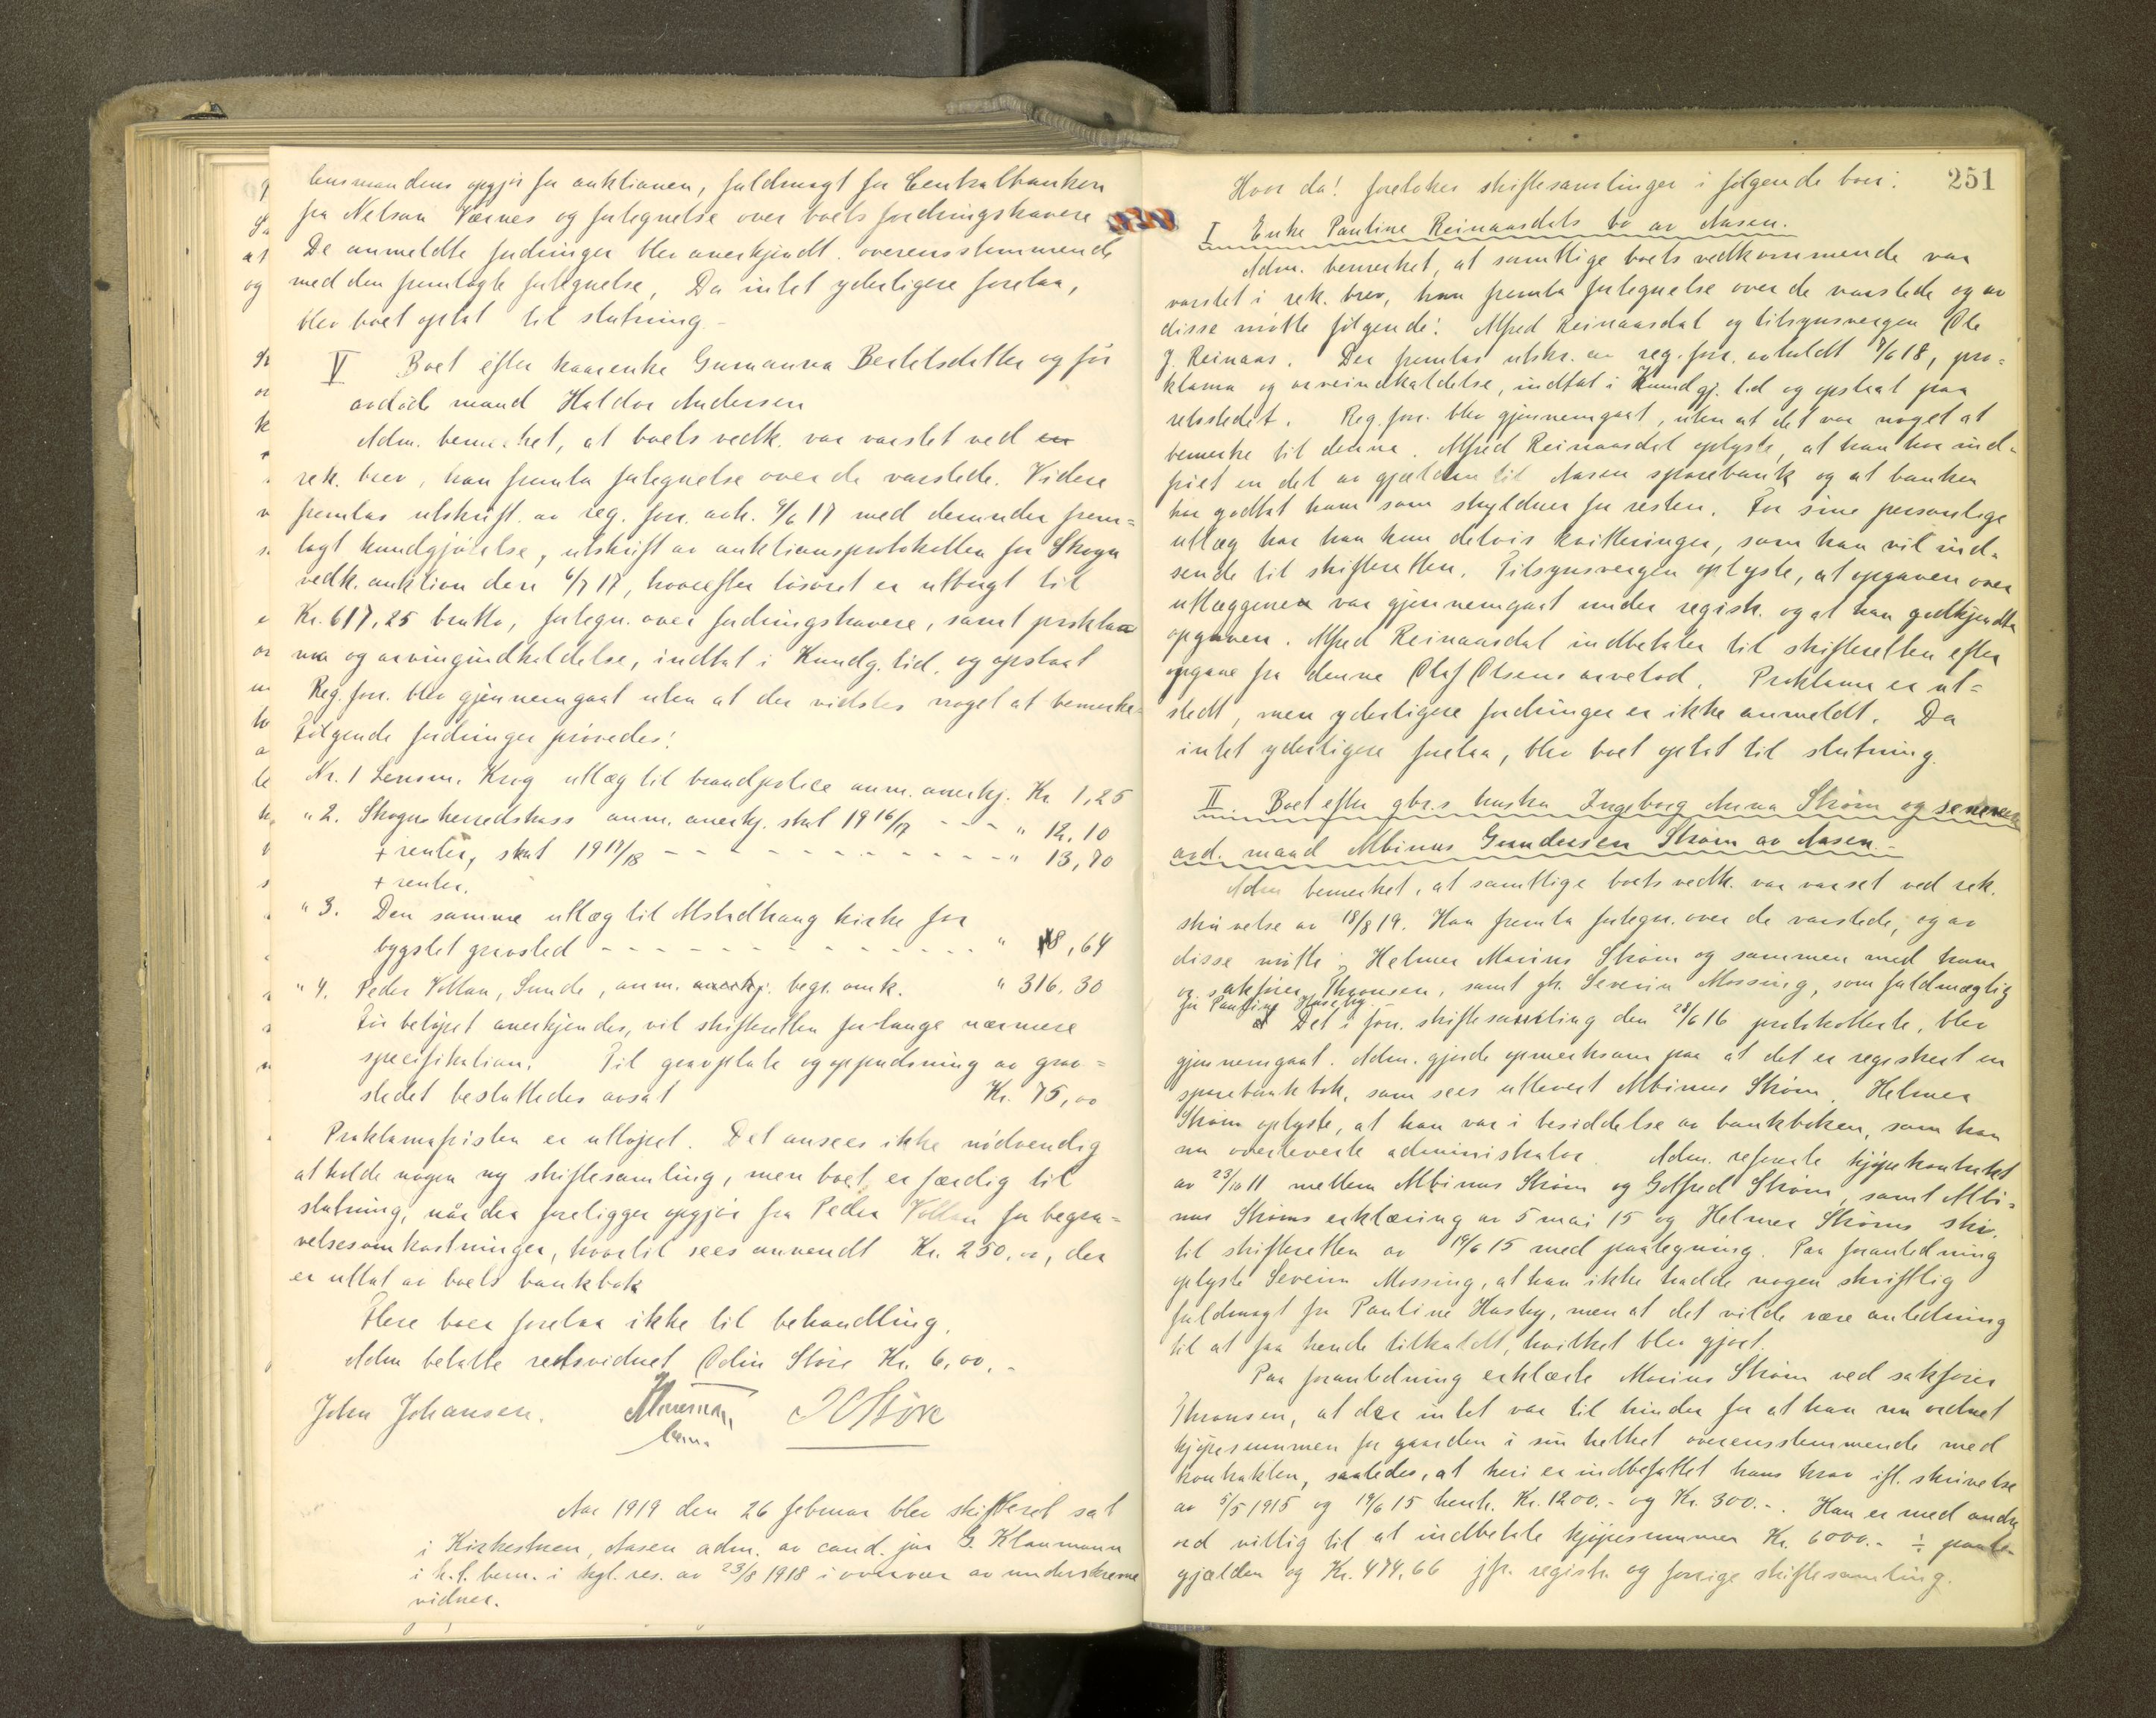 lensmandens opgjør for auktionen, fuldmagt for Centralbanken
fra Nelson Værnes og fortegnelse over boets fordringshavere
De anmeldte fordringer blev anerkjendt overensstemmende
med den fremlagte fortegnelse, Da intet yderligere forelaa,
blev boet optat til slutning -
V Boet efter kaarenke Gurianna Bertelsdatter og før
avdøde mand Haldor Andersen
Adm. bemerket, at boets vedk. var varslet ved en
rek. brev, han fremla fortegnelse over de varslede. Videre
fremlas utskrift av reg. forr. avh. 9/6 17 med derunder frem=
lagt kundgjørelse, utskrift av auktionsprotokollen for Skogn
vedk. auktion den 6/7 17, hvorefter løsøret er utbragt til
Kr. 617,25 brutto, fortegn. over fordringshavere, samt prokla=
ma og arvingindkaldelse, indtat i Kundg. tid. og opslaat
Reg. forr. blev gjennemgaat uten at der vidstes noget at bemerke.
Følgende fordringer prøvedes:
Nr. 1 Lensm. Krog utlæg til brandpolice anm. anerkj. Kr 1,25
" 2. Skogns herredskass anm. anerkj. skat 1916/17 - - - " 12,10
+ renter, skat 1917/18 - - - - - - - - - - - " 13,70
+ renter.
" 3. Den samme utlæg til Alstadhaug kirke for
bygslet gravsted - - - - - - - - - - - - " 8,64
" 4. Peder Vollan, Sunde, anm. anerkj. begr. omk. " 316,30
Før beløpet anerkjendes, vil skifteretten forlange nærmere
specifikation. Til gravplate og oppudsning av grav=
stedet besluttedes avsat Kr. 75,00
Proklamafristen er utløpet. Det ansees ikke nødvendig
at holde nogen ny skiftesamling, men boet er færdig til
slutning, når der foreligger opgjør fra Peder Vollan for begra=
velsesomkostninger, hvortil sees anvendt Kr. 250,00, der
er uttat av boets bankbok
Flere boer forelaa ikke til behandling.
Adm betalte retsvidnet Odin Støre Kr. 6,00.-
John Johansen. O Støre
Aar 1919 den 26 februar blev skifteret sat
i Kirkestuen, Aasen adm. av cand. jur G. Klaumann
i h.t. bem. i kgl. res. av 23/8 1918 i overvær av underskrevne
vidner.
251
Hvor da! foretokes skiftesamlinger i følgende boer:
I Enke Pauline Reinaasdals bo av Aasen.
Adm. bemerket, at samtlige boets vedkommende var
varslet i rek. brev, han fremla fortegnelse over de varslede og av
disse møtte følgende: Alfred Reinaasdal og tilsynsvergen Ole
J. Reinaas. Der fremlas utskr. av reg. forr. avholdt 7/6 18, pro=
klama og arveindkaldelse, indtat i Kundgj. tid og opslaat paa
retsstedet. Reg. forr. blev gjennemgaat, uten at det var noget at
bemerke til denne. Alfred Reinaasdal oplyste, at han har ind=
friet en del av gjælden til Aasen sparebank og at banken
har godtat ham som skyldner for resten. For sine personlige
utlæg har han kun delvis kvitteringer, som han vil ind=
sende til skifteretten. Tilsynsvergen oplyste, at opgaven over
utlæggene var gjennemgaat under registr. og at han godkjendte
opgaven. Alfred Reinaasdal indbetaler til skifteretten efter
opgave fra denne Olaf Olsens arvelod. Proklama er ut=
stedt, men yderligere fordringer er ikke anmeldt. Da
intet yderligere forelaa, blev boet optat til slutning.
II. Boet efter gbr.s hustru Ingeborg Anna Strøm og senere
avd. mand Albinus Gundersen Strøm av Aasen.-
Adm bemerket, at samtlige boets vedk. var varslet ved rek.
skrivelse av 18/8 19. Han fremla fortegn. over de varslede, og av
disse møtte: Helmer Marius Strøm og sammen med ham
og sakfører Thronsen, samt gbr. Severin Mossing, som fuldmægtig
for Pauline Husby.
Det i forr. skiftesamling den 28/6 16 protokollerte, blev
gjennemgaat. Adm. gjorde opmerksom paa at det er registrert en
sparebankbok, som sees utlevert Albinus Strøm. Helmer
Strøm oplyste, at han var i besiddelse av bankboken, som han
nu overleverte administrator. Adm. refererte kjøpekontrakt
av 23/10 11 mellem Albinus Strøm og Gotfred Strøm, samt Albi=
nus Strøms erklæring av 5 mai 15 og Helmer Strøms skr.
til skifteretten av 19/6 15 med paategning. Paa foranledning
oplyste Severin Mossing, at han ikke hadde nogen skriftlig
fuldmagt fra Pauline Husby, men at det vilde være anledning
til at faa hende tilkaldt, hvilket blev gjort.
Paa foranledning erklærte Marius Strøm ved sakfører
Thronsen, at der intet var til hinder for at han nu ordnet
kjøpesummen for gaarden i sin helhet overensstemmende med
kontrakten, saaledes, at heri er indbefattet hans krav ifl. skrivelse
av 5/5 1915 og 19/6 15 henh. Kr. 1200.- og Kr. 300.-. Han er med andre
ord villig til at indbetale kjøpesummen Kr. 6000.- ÷
gjælden og Kr. 474,66 jfr. registr. og forrige skiftesamling.